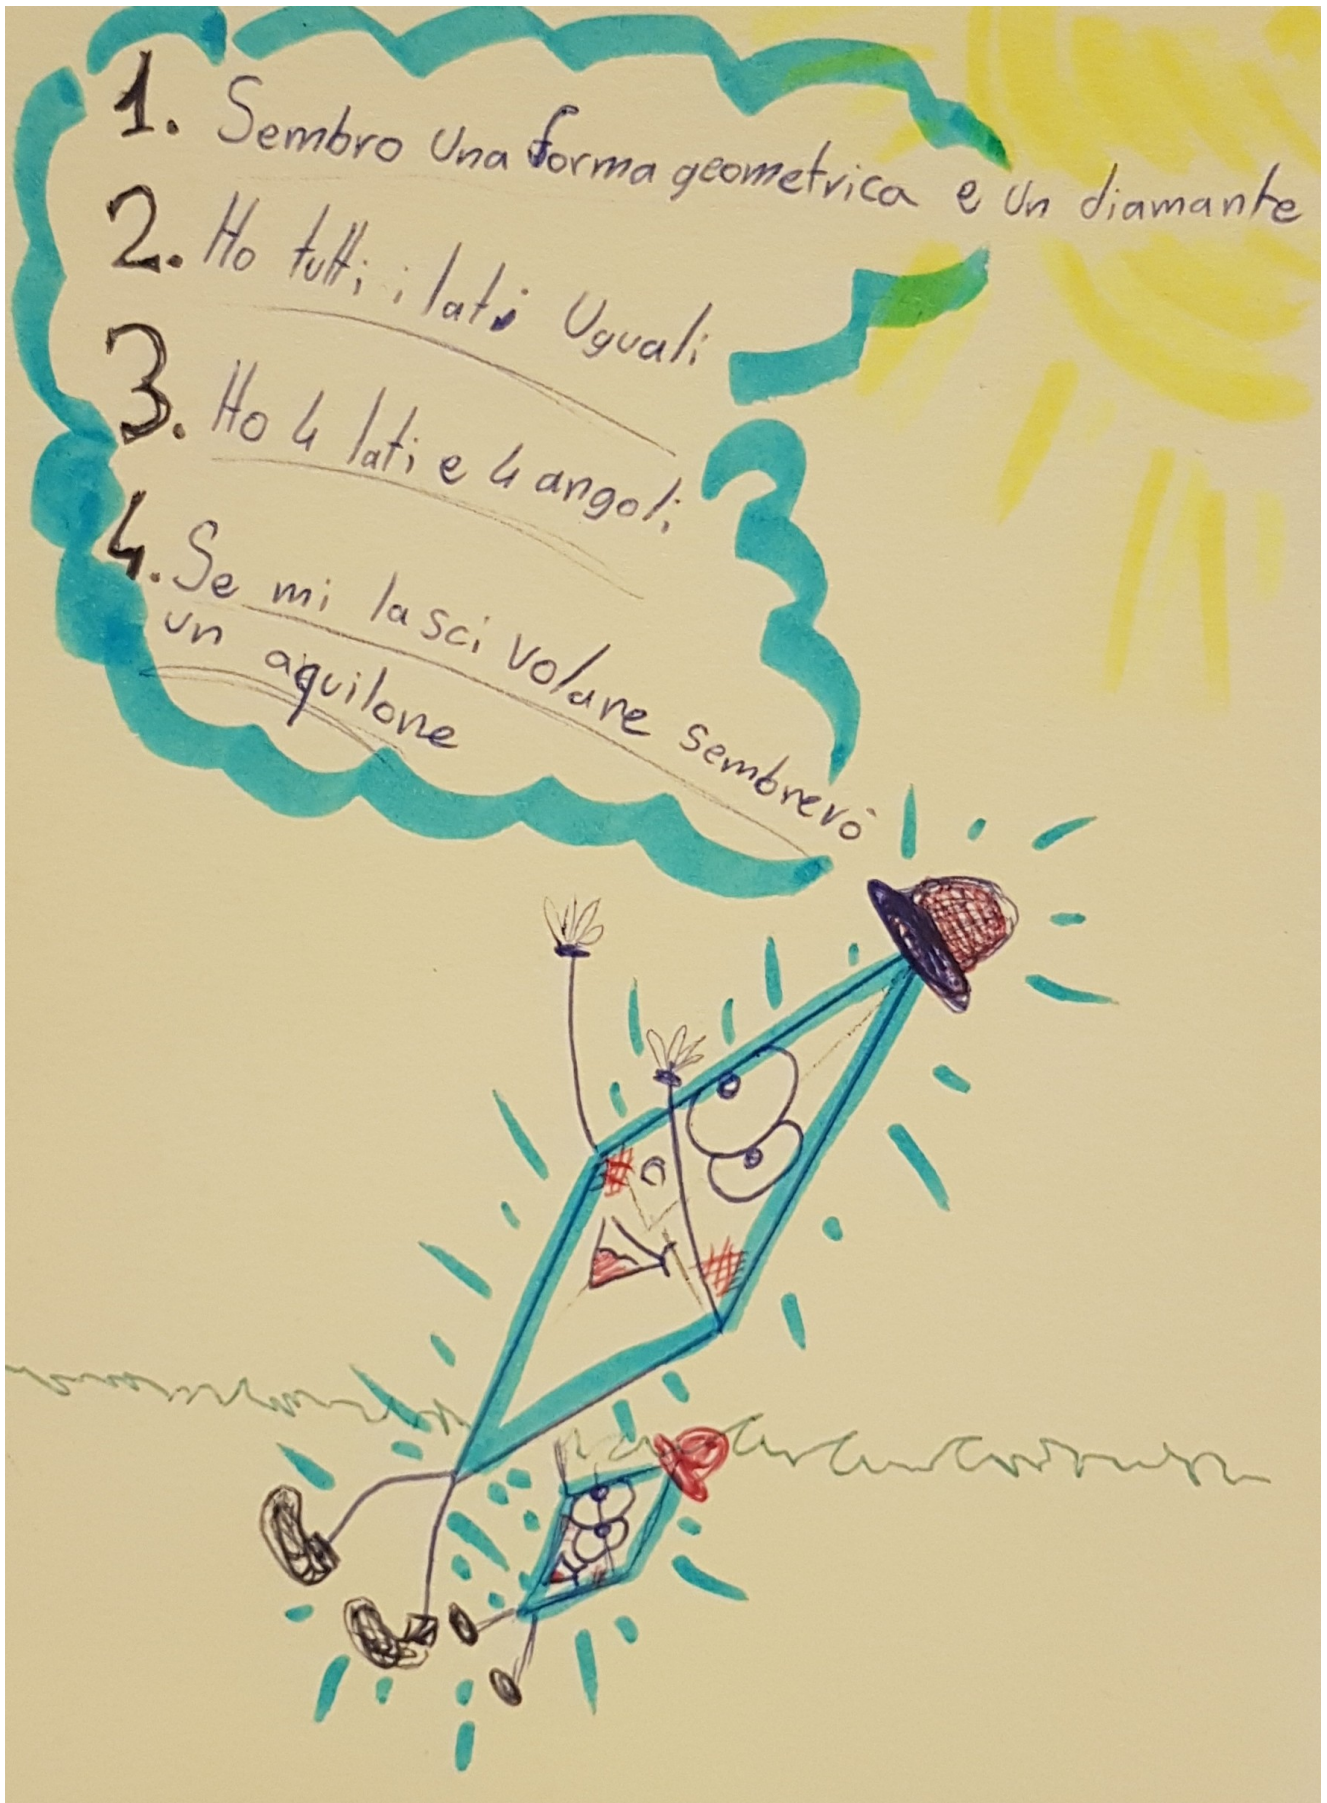 1. Sembro Una forma geometrica e Un diamante
2. Ho tutti i lati Uguali
3. Ho 4 lati e 4 angoli
4. Se mi lasci volare sembrerò
un aquilone